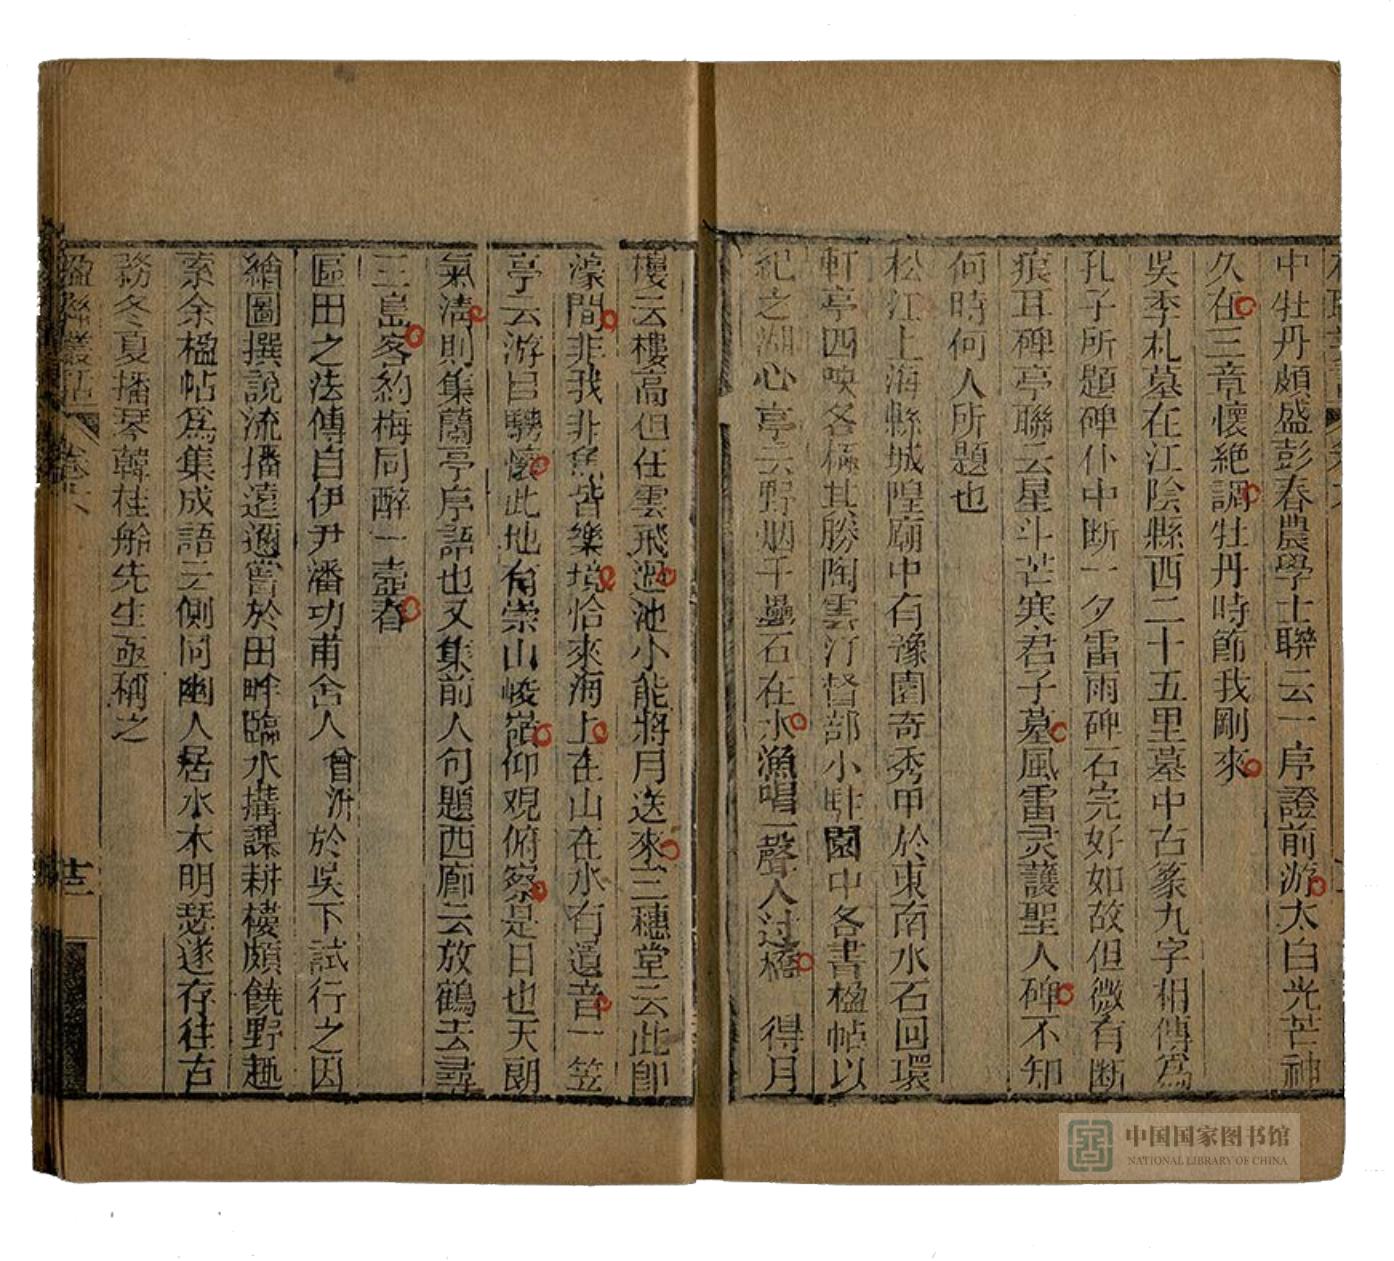 中牡丹頗盛彭春農學士聯云一序證前游太白光芒神
久在三章懷絶調牡丹時節我剛來
吳季札墓在江陰縣西二十五里墓中古篆九字相傳爲
孔子所題碑仆中断一夕雷雨碑石完好如故但微有断
痕耳碑亭聯云星斗芒寒君子墓風雷灵護聖人碑不知
何時何人所題也
松江上海縣城隍廟中有豫園奇秀甲於東南水石回環
軒亭四映各極其勝陶雲汀督部小駐園中各書楹帖以
紀之湖心亭云野烟千疊石在水漁唱一聲人过橋 得月
樓云樓高但任雲飛過池小能將月送來三穗堂云此卽
濠間非我非魚皆樂境恰來海上在山在水有遺音一笠
亭云游目騁懷此地有崇山峻嶺仰观俯察是日也天朗
氣清則集蘭亭序語也又集前人句題西廊云放鶴去尋
三島客約梅同醉一壺春
區田之法傳自伊尹潘功甫舍人曾沂於吳下試行之因
繪圖撰說流播遠邇嘗於田畔臨水搆課耕樓頗饒野趣
索余楹帖爲集成語云側同幽人居水木明瑟遂存往古
務冬夏播琴韓桂舲先生亟稱之
楹聯叢話 卷六
十三
中国国家图书馆
NATIONAL LIBRARY OF CHINA